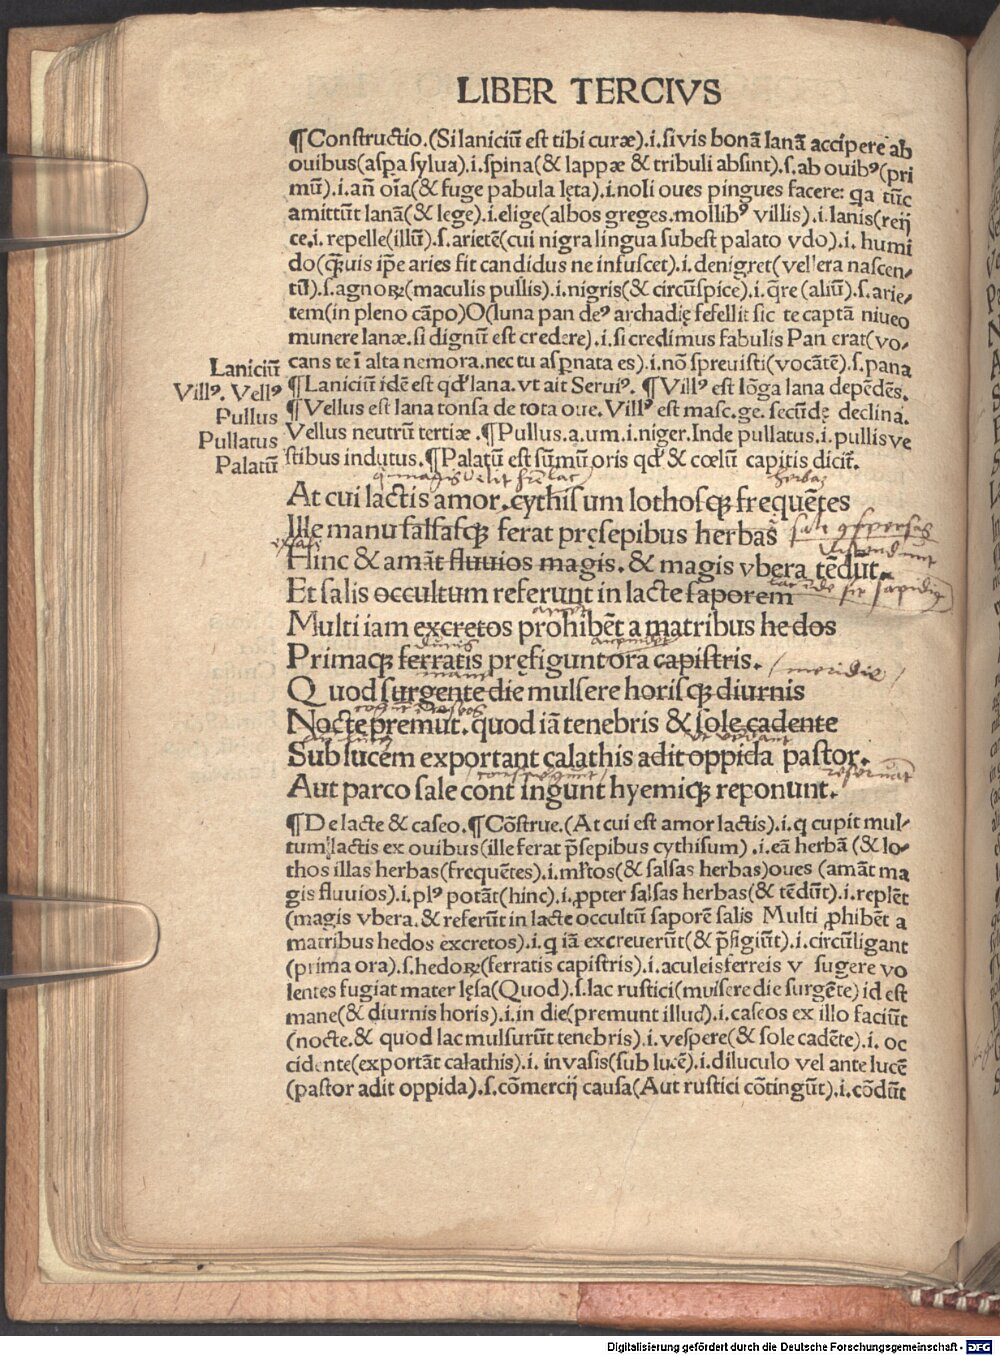 LIBER TERCIVS
¶Constructio.(Si laniciū est tibi curæ).i.si vis bonā lanā accipere ab
ouibus(aspa sylua).i.spina(& lappæ & tribuli absint).s.ab ouibꝰ(pri
mū).i.añ oīa(& fuge pabula lęta).i.noli oues pingues facere: qa tūc
amittūt lanā(& lege).i.elige(albos greges.mollibꝰ villis).i.lanis(reij
ce.i.repelle(illū).s.arietē(cui nigra lingua subest palato vdo).i.humi
do(q̄uis ip̄e aries sit candidus ne infuscet).i.denigret(vellera nascen-
tū).s.agnoꝝ(maculis pullis).i.nigris(& circūspice).i.q̄re(aliū).s.arie-
tem(in pleno cāpo)O(luna pan deꝰ archadię fefellit sic te captā niueo
munere lanæ.si dignū est credere).i.si credimus fabulis Pan erat(vo-
cans te ī alta nemora.nec tu asp̱nata es).i.nō spreuisti(vocātē).s.pana
Laniciū
¶Laniciū idē est qđ lana.vt ait Seruiꝰ. ¶Villꝰ est lōga lana depēdēs.
Villꝰ. Vellꝰ
¶Vellus est lana tonsa de tota oue.Villꝰ est masc.ge.secūdę declina.
Pullus
Vellus neutrū tertiæ.¶Pullus.a.um.i.niger.Inde pullatus.i.pullis ve
Pullatus
stibus indutus.¶Palatū est sūmū oris qđ & cœlū capitis dicit̄.
Palatū
herbas
At cui lactis amor.cythisum lothosq̢ frequētes
Ille manu salsasq̢ ferat pręsepibus herbas
Hinc & amāt fluuios magis.& magis vbera tēdūt.
Et salis occultum referunt in lacte saporem
Multi iam excretos prohibēt a matribus hedos
Primaq̢ ferratis pręfigunt ora capistris. meridie
Quod surgente die mulsere horisq̢ diurnis
Nocte premūt.quod iā tenebris & sole cadente
Sub lucem exportant calathis adit oppida pastor.
Aut parco sale contingunt hyemiq̢ reponunt.
¶De lacte & caseo.¶Cōstrue.(At cui est amor lactis).i.q cupit mul-
tum lactis ex ouibus(ille ferat p̄sepibus cythisum).i.eā herbā(& lo-
thos illas herbas(frequētes).i.ml̄tos(& salsas herbas)oues (amāt ma
gis fluuios).i.plꝰ potāt(hinc).i.ꝓpter salsas herbas(& tēdūt).i.replēt
(magis vbera.& referūt in lacte occultū saporē salis Multi ꝓhibēt a
matribus hedos excretos).i.q iā excreuerūt(& p̄figiūt).i.circūligant
(prima ora).s.hedoꝝ(ferratis capistris).i.aculeis ferreis v sugere vo
lentes fugiat mater lęsa(Quod).s.lac rustici(mulsere die surgēte) id est
mane(& diurnis horis).i.in die(premunt illud).i.caseos ex illo faciūt
(nocte.& quod lac mulsurūt tenebris).i.vespere(& sole cadēte).i. oc
cidente(exportāt calathis).i. in vasis(sub lucē).i.diluculo vel ante lucē
(pastor adit oppida).s.cōmercij causa(Aut rustici cōtingūt).i.cōdūt
Digitalisierung gefördert durch die Deutsche Forschungsgemeinschaft - DFG